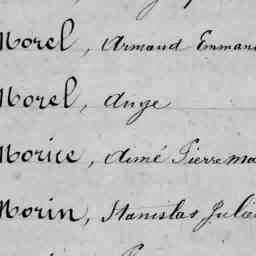 Morel, Armand Emman
Morel, Ange
Morice, Aimé Pierre Ma
Morin, Stanislas Julie